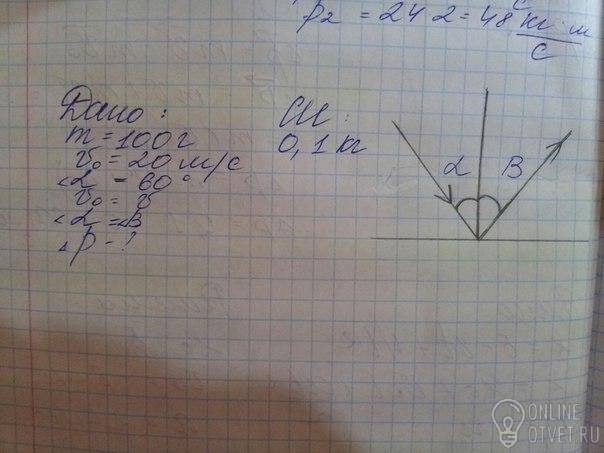 p₂ = 24 · 2 = 48 кг · м
с
Дано:
m = 100г
v₀ = 20 м/с
∠α = 60°
v₀ = v
∠α = ∠B
Δp - ?
СИ:
0,1 кг
α B
ONLINE
OTVET.RU